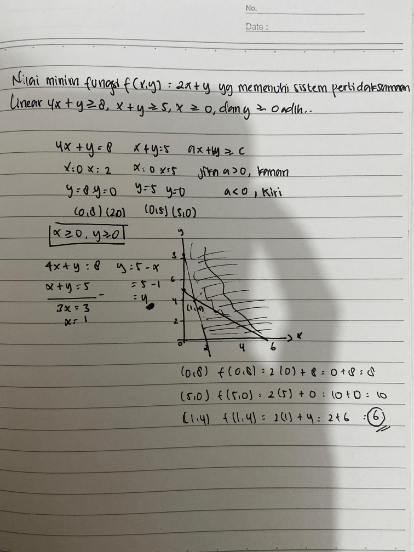 No.
Date :
Nilai minim fungsi f(x,y) = 2x+y yg memenuhi sistem pertidaksamaan
linear 4x+y≥8, x+y≥5, x≥0, dan y≥0 adlh...
4x+y=8 x+y=5 ax+by≥c
x=0 x=2 x=0 x=5 jika a>0, kanan
y=8 y=0 y=5 y=0 a<0, kiri
(0,8) (2,0) (0,5) (5,0)
x≥0, y≥0
4x+y=8 y=5-x
x+y=5 =5-1
3x=3 =4
x=1
y
8
6
4
2
(1,4)
0 2 4 6 x
(0,8) f(0,8)=2(0)+8=0+8=8
(5,0) f(5,0)=2(5)+0=10+0=10
(1,4) f(1,4)=2(1)+4=2+6=6